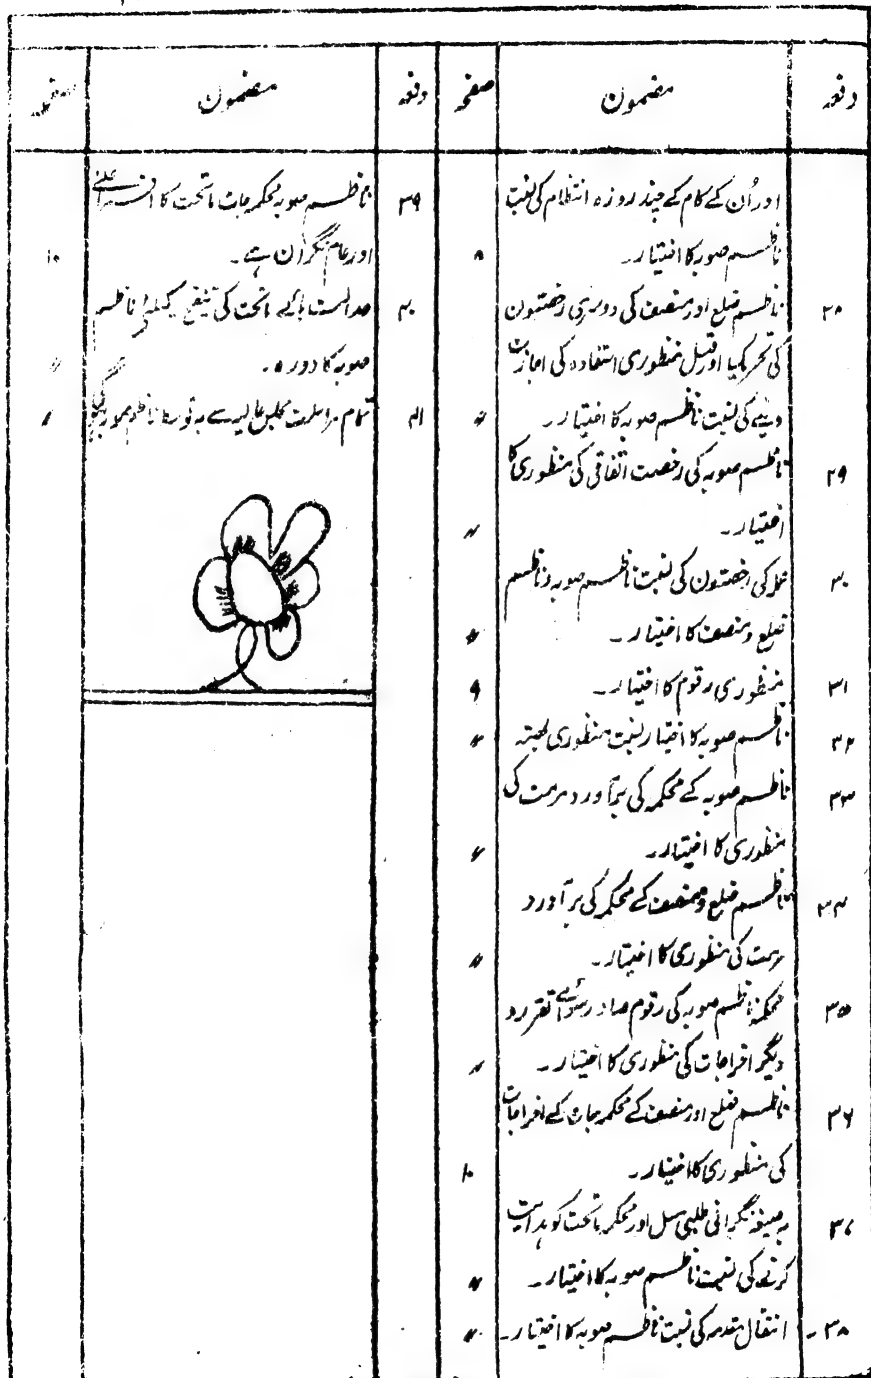 دفعہ مضمون صفحہ
اور اُن کے کام کے چند روزہ انتظام کی نسبت
ناظم صوبہ کا اختیار۔ ۸
۲۸ ناظم ضلع اور منصف کی دوسری رخصتون
کی تحریک یا اور قبل منظوری استفادہ کی اجازت
دینے کی نسبت ناظم صوبہ کا اختیار۔ ״
۲۹ ناظم صوبہ کی رخصت اتفاقی کی منظوری کا
اختیار۔ ״
۳۰ عملہ کی رخصتون کی نسبت ناظم صوبہ و ناظم
ضلع و منصف کا اختیار۔ ״
۳۱ منظوری رقوم کا اختیار۔ ۹
۳۲ ناظم صوبہ کا اختیار نسبت منظوری بھتہ ״
۳۳ ناظم صوبہ کے محکمہ کی برآورد مرمت کی
منظوری کا اختیار۔ ״
۳۴ ناظم ضلع و منصف کے محکمہ کی برآورد
مرمت کی منظوری کا اختیار۔ ״
۳۵ محکمہ ناظم صوبہ کی رقوم صادر سوائے تقرر و
دیگر اخراجات کی منظوری کا اختیار۔ ״
۳۶ ناظم ضلع اور منصف کے محکمہ جات کے اخراجات
کی منظوری کا اختیار۔ ۱۰
۳۷ بہ صیغہ نگرانی طلبی مسل اور محکمہ ماتحت کو ہدایت
کرنے کی نسبت ناظم صوبہ کا اختیار۔ ״
۳۸۔ انتقال مقدمہ کی نسبت ناظم صوبہ کا اختیار۔ ״
دفعہ مضمون صفحہ
۳۹ ناظم صوبہ محکمہ جات ماتحت کا افسر اعلے
اور عام نگران ہے۔ ۱۰
۴۰ عدالت ہائے ماتحت کی تنقیح کیلئے ناظم
صوبہ کا دورہ۔ ״
۴۱ تمام مراسلت مجلس عالیہ سے بہ توسط ناظم صوبہ ہوگی ״